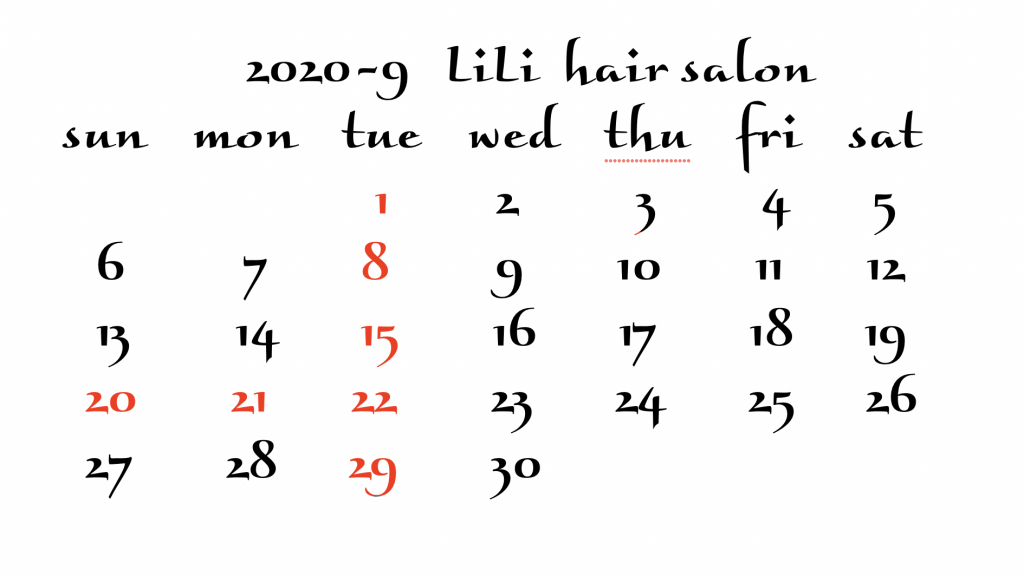 2020-9 LiLi hair salon
sun mon tue wed thu fri sat
1 2 3 4 5
6 7 8 9 10 11 12
13 14 15 16 17 18 19
20 21 22 23 24 25 26
27 28 29 30